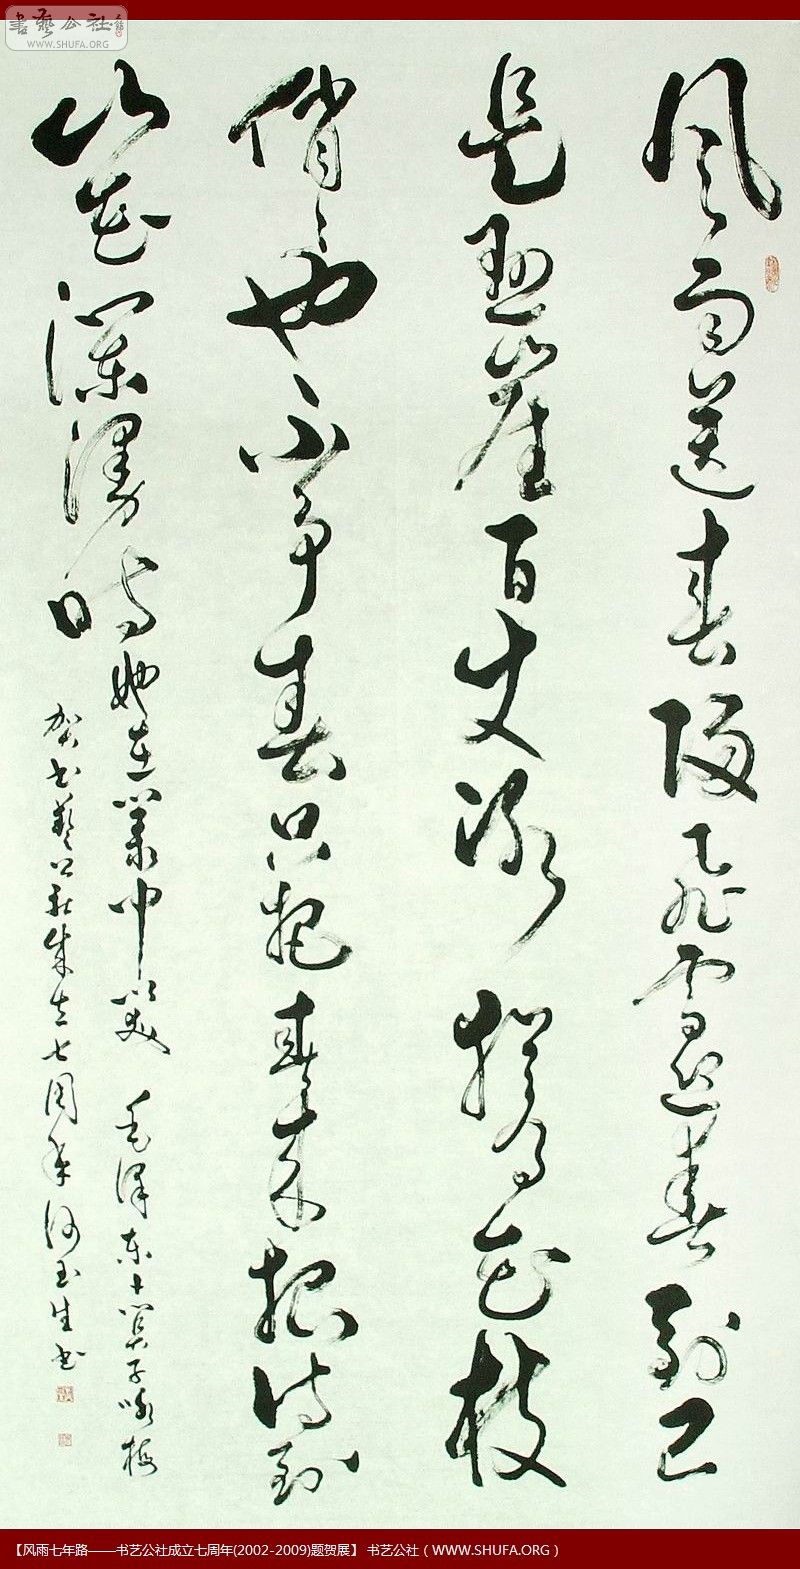 書藝公社
WWW.SHUFA.ORG
风雨送春归飞雪迎春到已
是悬崖百丈冰犹有花枝
俏〻也不争春只把春来报待到
山花澜漫时她在丛中笑 毛泽东卜算子咏梅
贺书艺公社成立七周年 玉生书
【风雨七年路——书艺公社成立七周年(2002-2009)题贺展】 书艺公社（WWW.SHUFA.ORG）